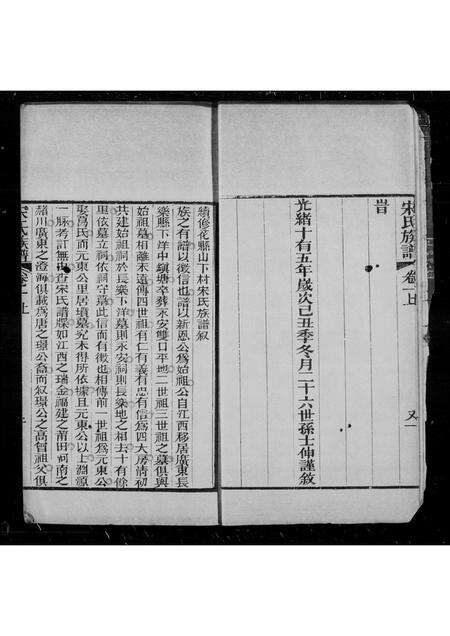 宋氏族譜 卷一上 又一
旹
光緒十有五年歲次己丑季冬月二十六世孫士仲謹敘
續修花縣山下村宋氏族譜叙
族之有譜以徵信也譜以新恩公爲始祖公自江西移居廣東長
樂縣下洋中鎭塘卒葬永安雙口平地二世祖三世祖之墓俱與
始祖墓相離未遠傳四世祖有仁有義有忠有信爲四大房淸初
共建始祖祠於長樂下洋墓則永安祠則長樂地之相去十有餘
里依墓立祠依祠守墓此信而有徵也相傳前一世祖爲元東公
娶馬氏而元東公里居墳墓究未得所依據且元東公以上淵源
一脉考訂無由查宋氏譜牒如江西之瑞金福建之莆田河南之
潞川廣東之澄海俱載爲唐之璟公裔而叙璟公之高曾祖父俱
宋氏族譜 卷一上